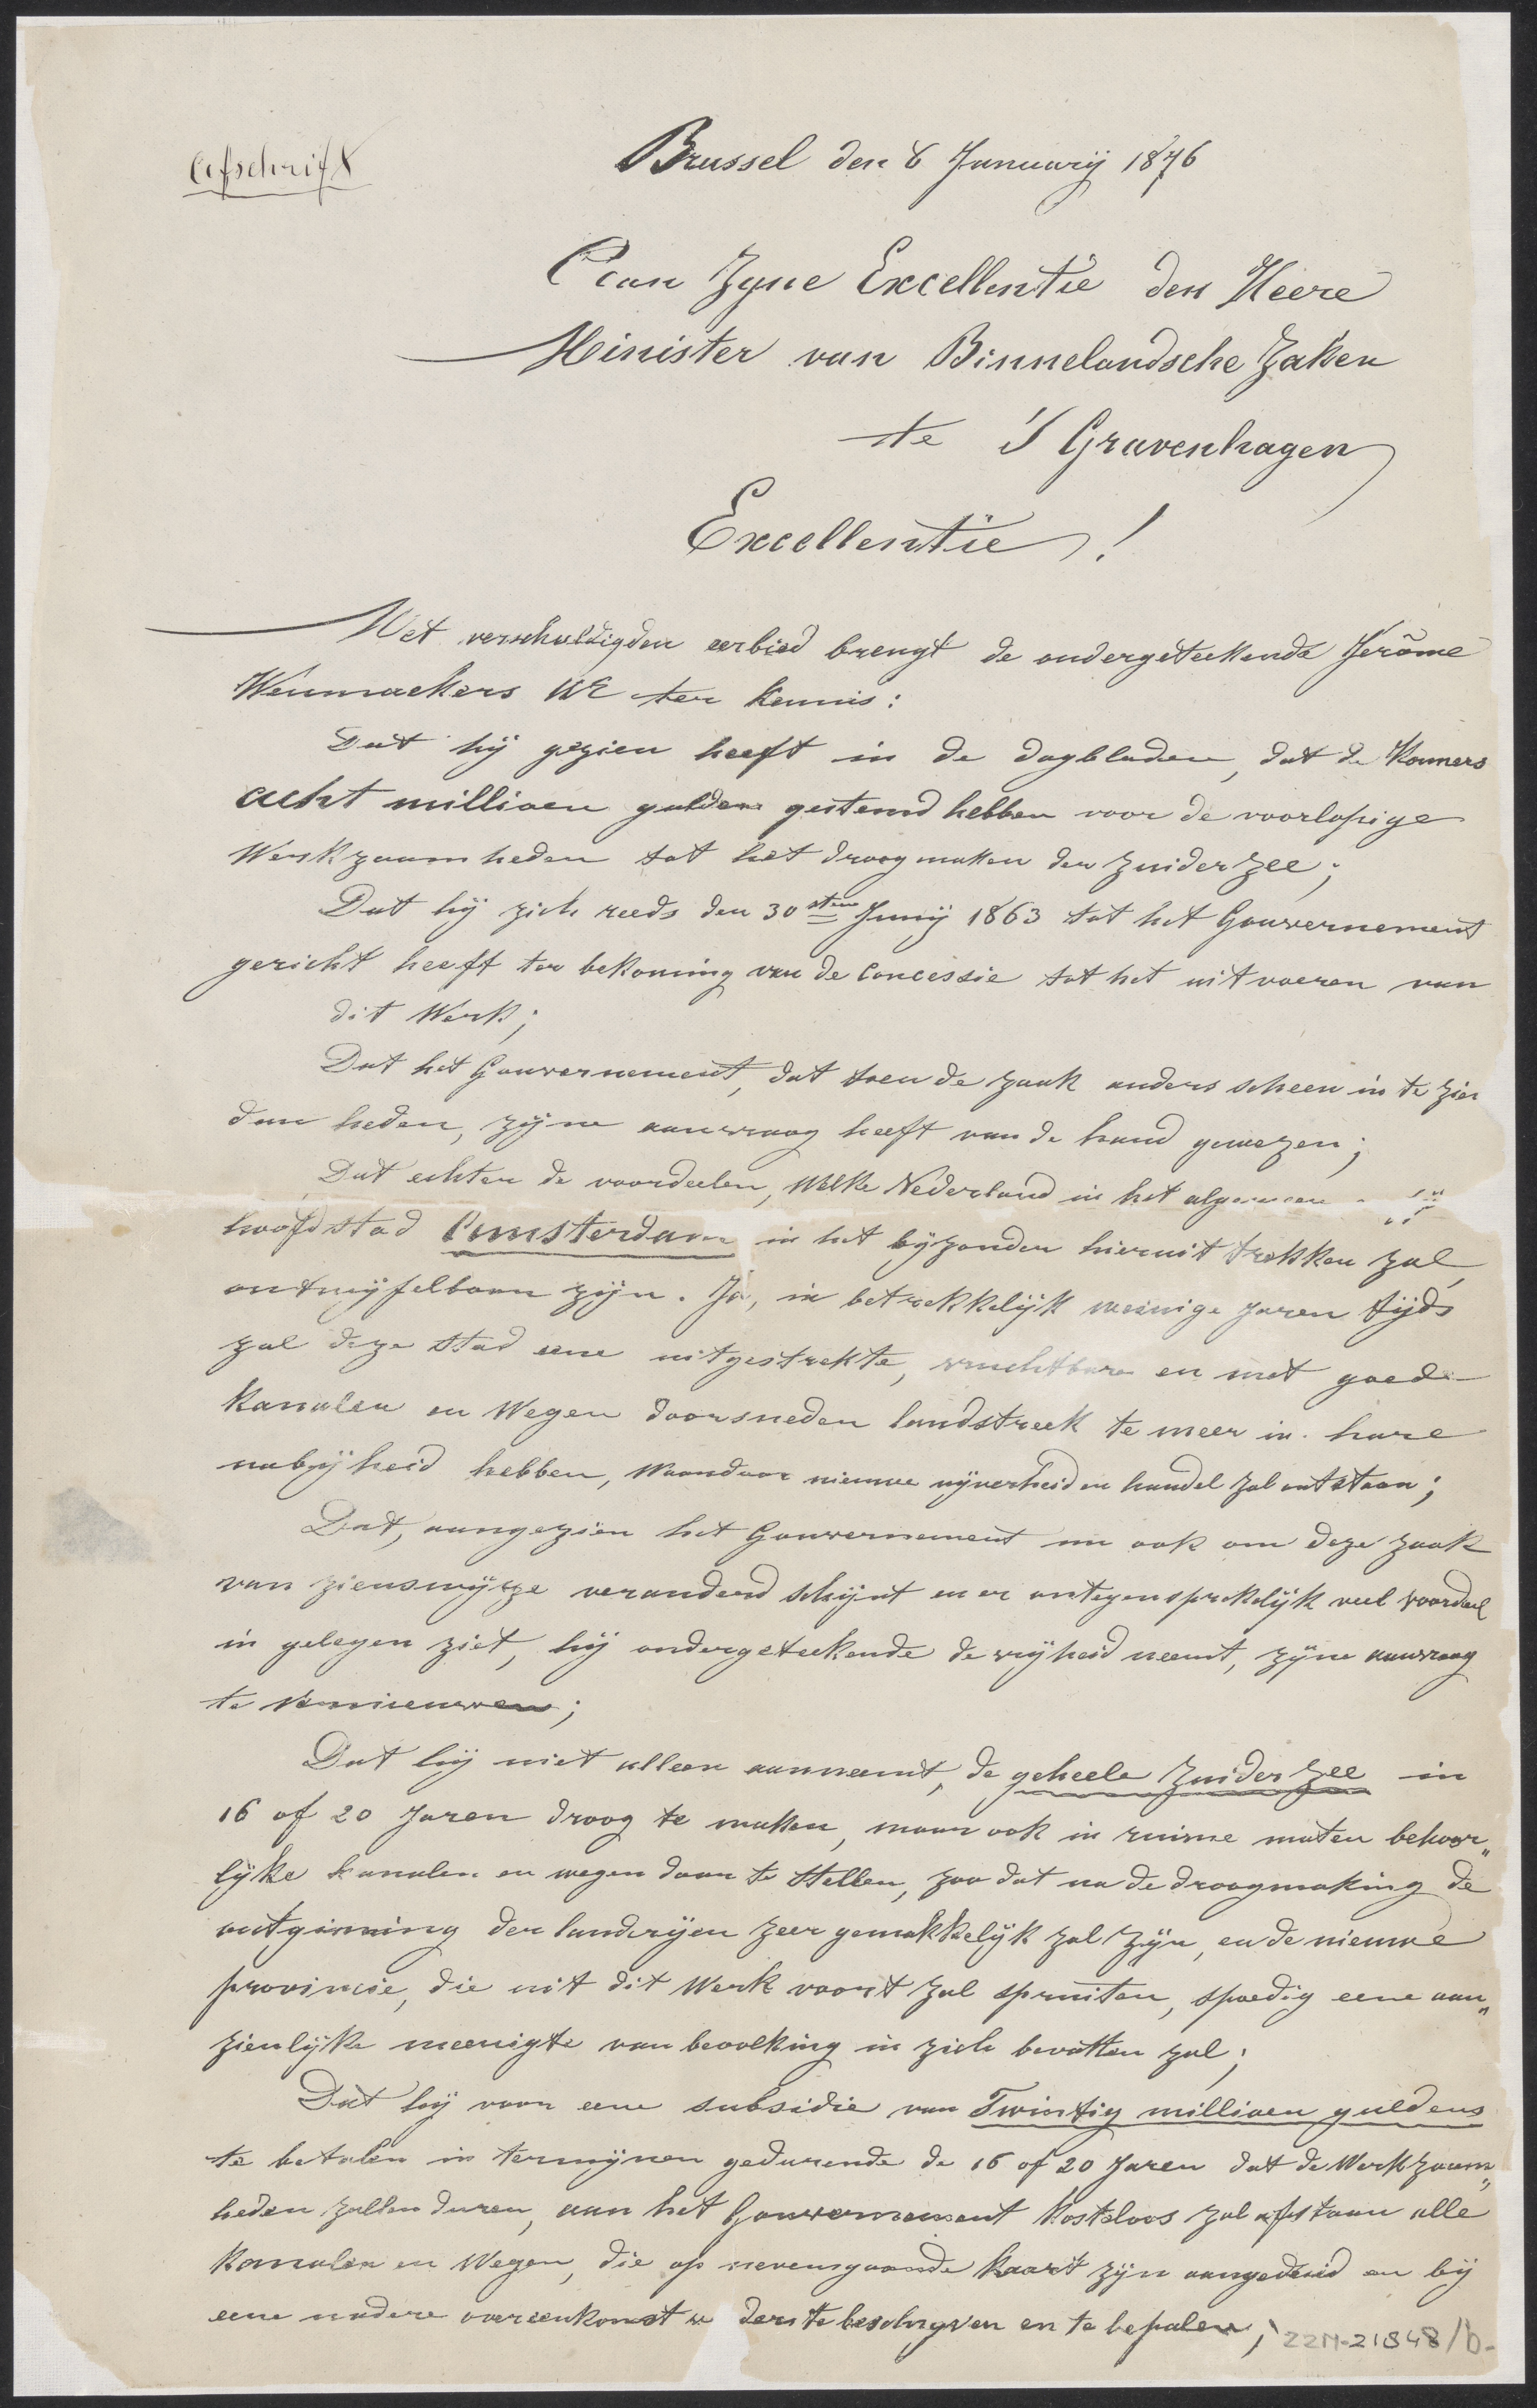 Afschrift
Brussel den 6 Januarij 1876
Aan Zyne Excellentie den Heere
Minister van Binnelandsche Zaken
te 'S Gravenhagen
Excellentie!
Met verschuldigden eerbied brengt de ondergeteekende Jerôme
Wenmaekers UE ter kennis:
Dat hij gezien heeft in de dagbladen, dat de Kamers
acht millioen guldens gestemd hebben voor de voorlopige
Werkzaamheden tot het droogmaken der Zuiderzee;
Dat hij zich reeds den 30sten Junij 1863 tot het Gouvernement
gericht heeft ter bekoming van de Concessie tot het uitvoeren van
dit Werk;
Dat het Gouvernement, dat toen de zaak anders scheen in te zien
dan heden, zijne aanvraag heeft van de hand gewezen;
Dat echter de voordeelen, welke Nederland in het algemeen
hoofdstad Amsterdam in het byzonder hieruit trekken zal,
ontwijfelbaar zijn. Ja, in betrekkelijk weinige jaren tijds
zal deze stad eene uitgestrekte, vruchtbare en met goede
Kanalen en Wegen doorsneden landstreek te meer in hare
nabijheid hebben, waardoor nieuwe nijverheid en handel zal ontstaan;
Dat, aangezien het Gouvernement nu ook om deze zaak
van zienswijze veranderd schijnt en er ontegensprekelijk veel voordeel
in gelegen ziet, hij ondergeteekende de vrijheid neemt, zijne aanvraag
te vernieuwen;
Dat hij niet alleen aanneemt, de geheele Zuiderzee in
16 of 20 Jaren droog te maken, maar ook in ruime maten behoor„
lijke kanalen en wegen daar te stellen, zoo dat na de droogmaking de
ontginning der landerijen zeer gemakkelijk zal zijn, en de nieuwe
provincie, die uit dit Werk voort zal spruiten, spoedig eene aan„
zienlijke meenigte van bevolking in zich bevatten zal;
Dat hij voor eene subsidie van Twintig millioen guldens
te betalen in termijnen gedurende de 16 of 20 Jaren dat de Werkzaam„
heden zullen duren, aan het Gouvernement kosteloos zal afstaan alle
Kanalen en Wegen, die op nevensgaande kaart zijn aangeduid en bij
eene nadere overeenkomst derste beschryven en te bepalen;
ZZM-21848/b.